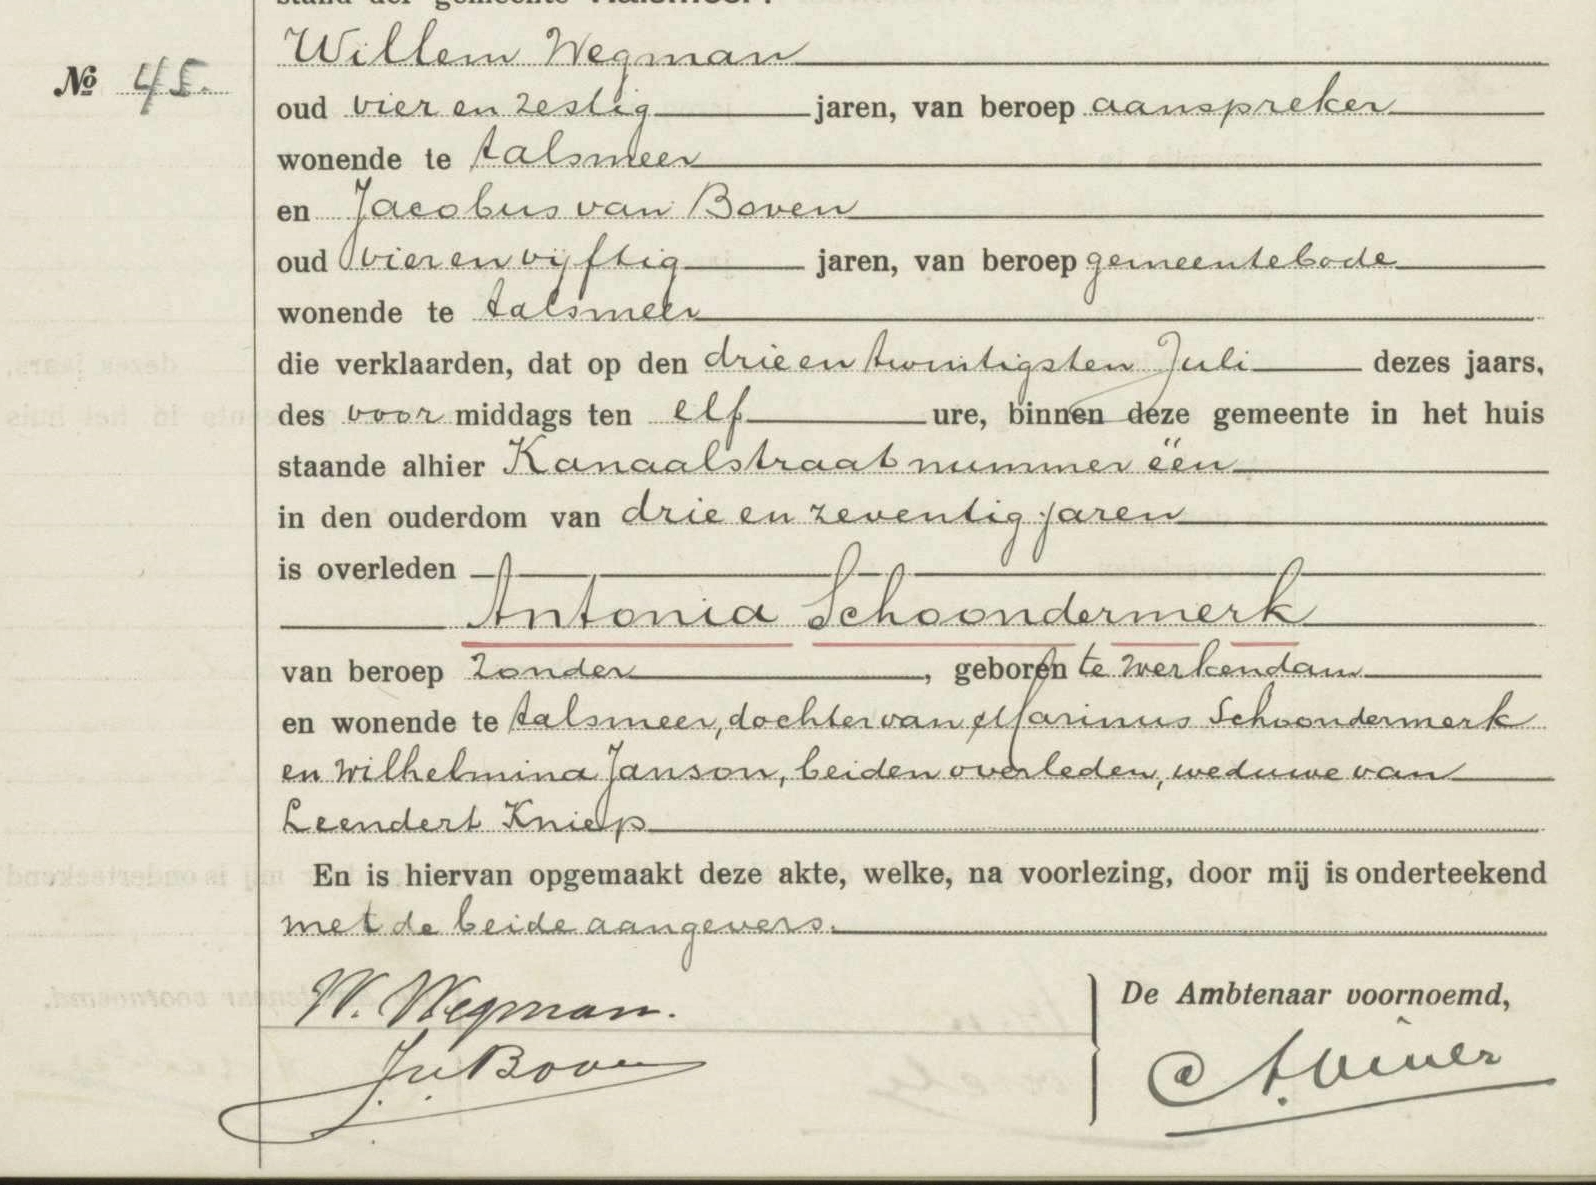 Willem Wegman
No 45.
oud vier en zestig jaren, van beroep aanspreker
wonende te Aalsmeer
en Jacobus van Boven
oud vier en vijftig jaren, van beroep gemeentebode
wonende te Aalsmeer
die verklaarden, dat op den drie en twintigsten Juli dezes jaars,
des voor middags ten elf ure, binnen deze gemeente in het huis
staande alhier Kanaalstraat nummer één
in den ouderdom van drie en zeventig jaren
is overleden
Antonia Schoondermerk
van beroep zonder, geboren te Werkendam
en wonende te Aalsmeer, dochter van Marinus Schoondermerk
en Wilhelmina Janson, beiden overleden, weduwe van
Leendert Kniep
En is hiervan opgemaakt deze akte, welke, na voorlezing, door mij is onderteekend
met de beide aangevers.
W. Wegman.
De Ambtenaar voornoemd,
J. v. Boven